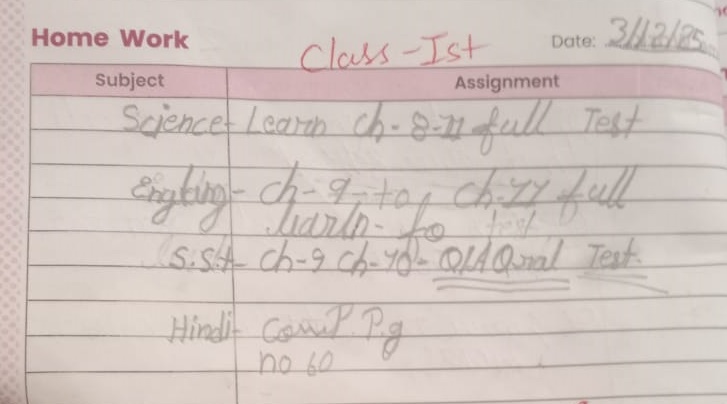 Home Work
Class - Ist
Date: 3/12/25
Subject
Assignment
Science - Learn ch - 8-11 full Test
Engling - ch - 9 - to, ch-11 full
learn - fo test
S.St - ch-9 ch-10 - Q/A Oral Test.
Hindi - Comp P.g
no 60